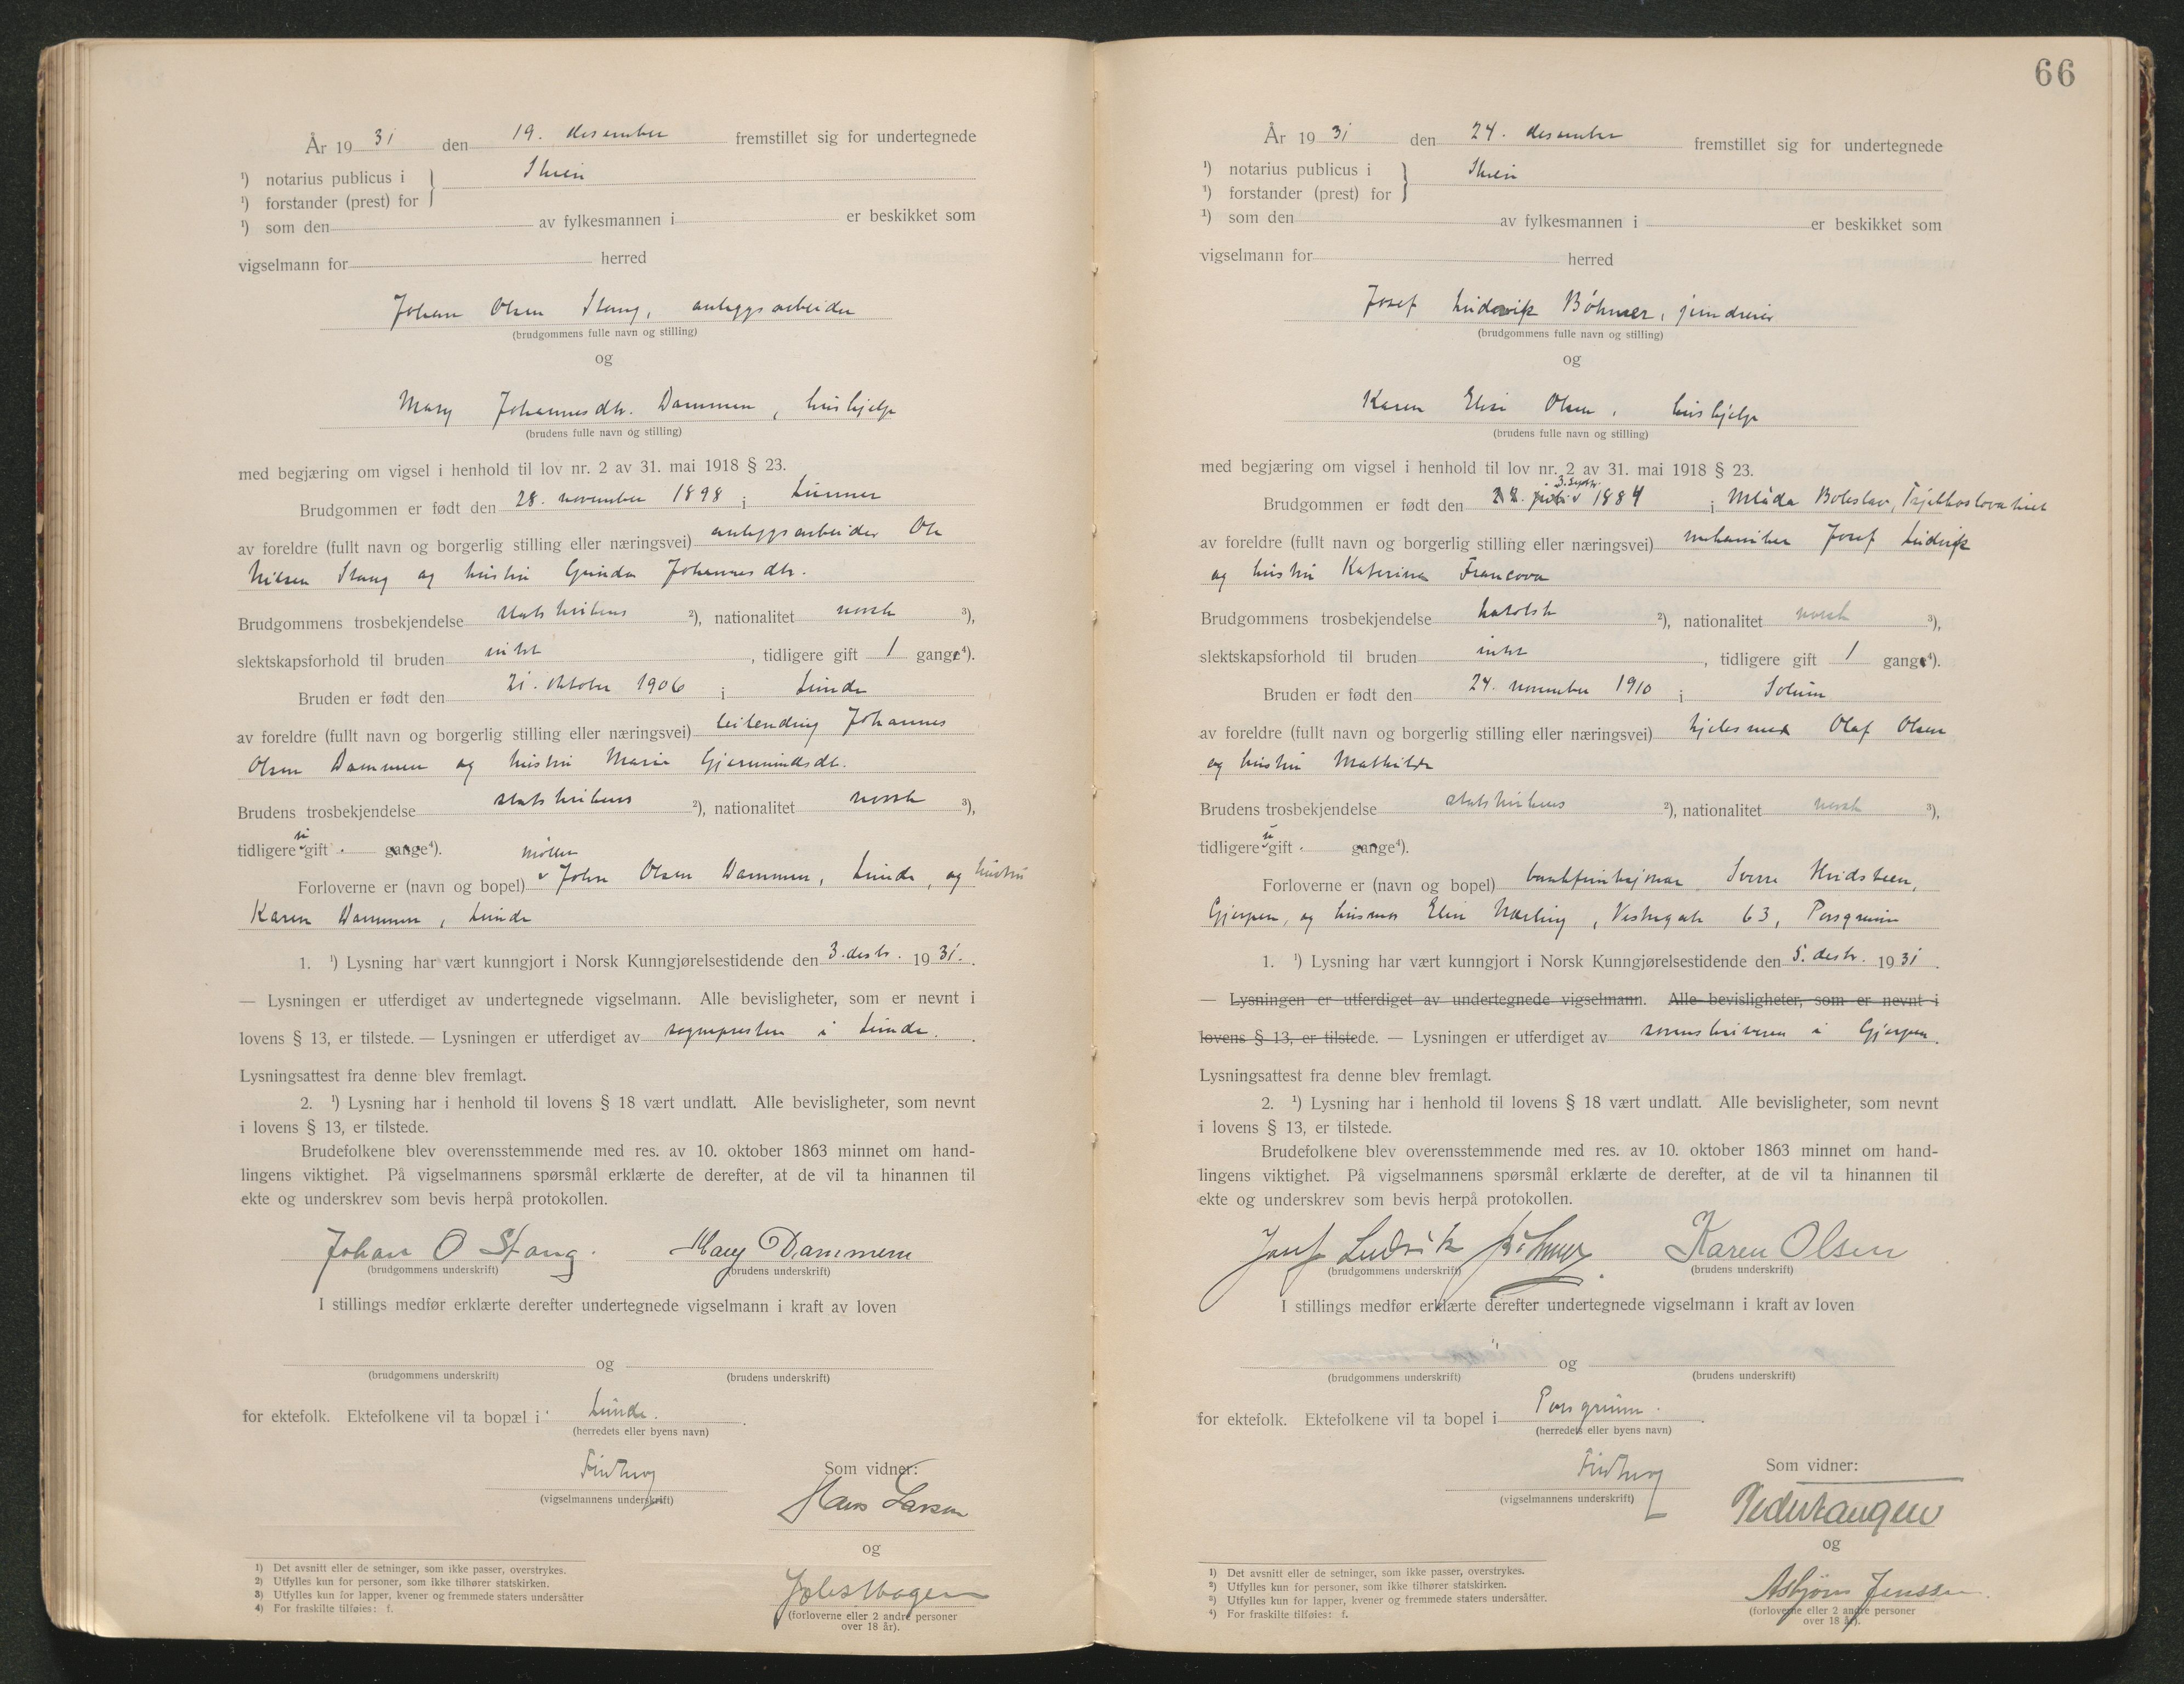 År 19 31 den 19. desember fremstillet sig for undertegnede
¹) notarius publicus i } Skien
¹) forstander (prest) for
¹) som den av fylkesmannen i er beskikket som
vigselmann for herred
Johan Olsen Stang, anleggsarbeider
(brudgommens fulle navn og stilling)
og
Mary Johannesdtr. Dammen, hushjelp
(brudens fulle navn og stilling)
med begjæring om vigsel i henhold til lov nr. 2 av 31. mai 1918 § 23.
Brudgommen er født den 28. november 1898 i Lunner
av foreldre (fullt navn og borgerlig stilling eller næringsvei) anleggsarbeider Ole
Nilsen Stang og hustru Gunda Johannesdtr.
Brudgommens trosbekjendelse statskirkens ²), nationalitet norsk ³),
slektskapsforhold til bruden intet, tidligere gift 1 gang ⁴).
Bruden er født den 21. oktober 1906 i Lunde
av foreldre (fullt navn og borgerlig stilling eller næringsvei) leilending Johannes
Olsen Dammen og hustru Marie Gjermundsdtr.
Brudens trosbekjendelse statskirkens ²), nationalitet norsk ³),
tidligere ei gift gange⁴).
Forloverne er (navn og bopel) møller John Olsen Dammen, Lunde, og hustru
Karen Dammen, Lunde
1. ¹) Lysning har vært kunngjort i Norsk Kunngjørelsestidende den 3. desbr. 19 31.
— Lysningen er utferdiget av undertegnede vigselmann. Alle bevisligheter, som er nevnt i
lovens § 13, er tilstede. — Lysningen er utferdiget av sogneprestern i Lunde.
Lysningsattest fra denne blev fremlagt.
2. ¹) Lysning har i henhold til lovens § 18 vært undlatt. Alle bevisligheter, som nevnt
i lovens § 13, er tilstede.
Brudefolkene blev overensstemmende med res. av 10. oktober 1863 minnet om hand-
lingens viktighet. På vigselmannens spørsmål erklærte de derefter, at de vil ta hinannen til
ekte og underskrev som bevis herpå protokollen.
Johan O Stang. Mary Dammen
(brudgommens underskrift) (brudens underskrift)
I stillings medfør erklærte derefter undertegnede vigselmann i kraft av loven
og
(brudgommens underskrift) (brudens underskrift)
for ektefolk. Ektefolkene vil ta bopæl i Lunde.
(herredets eller byens navn)
Som vidner:
(vigselmannens underskrift)
Hans Larsen
og
(forloverne eller 2 andre personer
over 18 år).
1) Det avsnitt eller de setninger, som ikke passer, overstrykes.
2) Utfylles kun for personer, som ikke tilhører statskirken.
3) Utfylles kun for lapper, kvener og fremmede staters undersåtter
4) For fraskilte tilføies: f.
66
År 19 31 den 24. desember fremstillet sig for undertegnede
¹) notarius publicus i } Skien
¹) forstander (prest) for
¹) som den av fylkesmannen i er beskikket som
vigselmann for herred
Josef Ludvik Böhmer, jerndreier
(brudgommens fulle navn og stilling)
og
Karen Elise Olsen, hushjelp
(brudens fulle navn og stilling)
med begjæring om vigsel i henhold til lov nr. 2 av 31. mai 1918 § 23.
3. septbr.
Brudgommen er født den 1884 i Mlada Boleslav, Tsjekkoslovakiet
av foreldre (fullt navn og borgerlig stilling eller næringsvei) mekaniker Josef Ludvik
og hustru Katerina Francova
Brudgommens trosbekjendelse katolsk ²), nationalitet norsk ³),
slektskapsforhold til bruden intet, tidligere gift 1 gang ⁴).
Bruden er født den 24. november 1910 i Solum
av foreldre (fullt navn og borgerlig stilling eller næringsvei) kjelesmed Olaf Olsen
og hustru Mathilde
Brudens trosbekjendelse statskirkens ²), nationalitet norsk ³),
tidligere ei gift gange⁴).
Forloverne er (navn og bopel) bankfunksjonær Sverre Kvidsteen,
Gjerpen, og husmor Elin Nærling, Vestregate 63, Porsgrunn
1. ¹) Lysning har vært kunngjort i Norsk Kunngjørelsestidende den 5. desbr. 19 31.
— Lysningen er utferdiget av undertegnede vigselmann. Alle bevisligheter, som er nevnt i
lovens § 13, er tilstede. — Lysningen er utferdiget av sorenskriveren i Gjerpen.
Lysningsattest fra denne blev fremlagt.
2. ¹) Lysning har i henhold til lovens § 18 vært undlatt. Alle bevisligheter, som nevnt
i lovens § 13, er tilstede.
Brudefolkene blev overensstemmende med res. av 10. oktober 1863 minnet om hand-
lingens viktighet. På vigselmannens spørsmål erklærte de derefter, at de vil ta hinannen til
ekte og underskrev som bevis herpå protokollen.
Josef Ludvik Böhmer. Karen Olsen
(brudgommens underskrift) (brudens underskrift)
I stillings medfør erklærte derefter undertegnede vigselmann i kraft av loven
og
(brudgommens underskrift) (brudens underskrift)
for ektefolk. Ektefolkene vil ta bopel i Porsgrunn.
(herredets eller byens navn)
Som vidner:
(vigselmannens underskrift)
og
Asbjørn Jenssen
(forloverne eller 2 andre personer
over 18 år).
¹) Det avsnitt eller de setninger, som ikke passer, overstrykes.
²) Utfylles kun for personer, som ikke tilhører statskirken.
³) Utfylles kun for lapper, kvener og fremmede staters undersåtter.
⁴) For fraskilte tilføies: f.